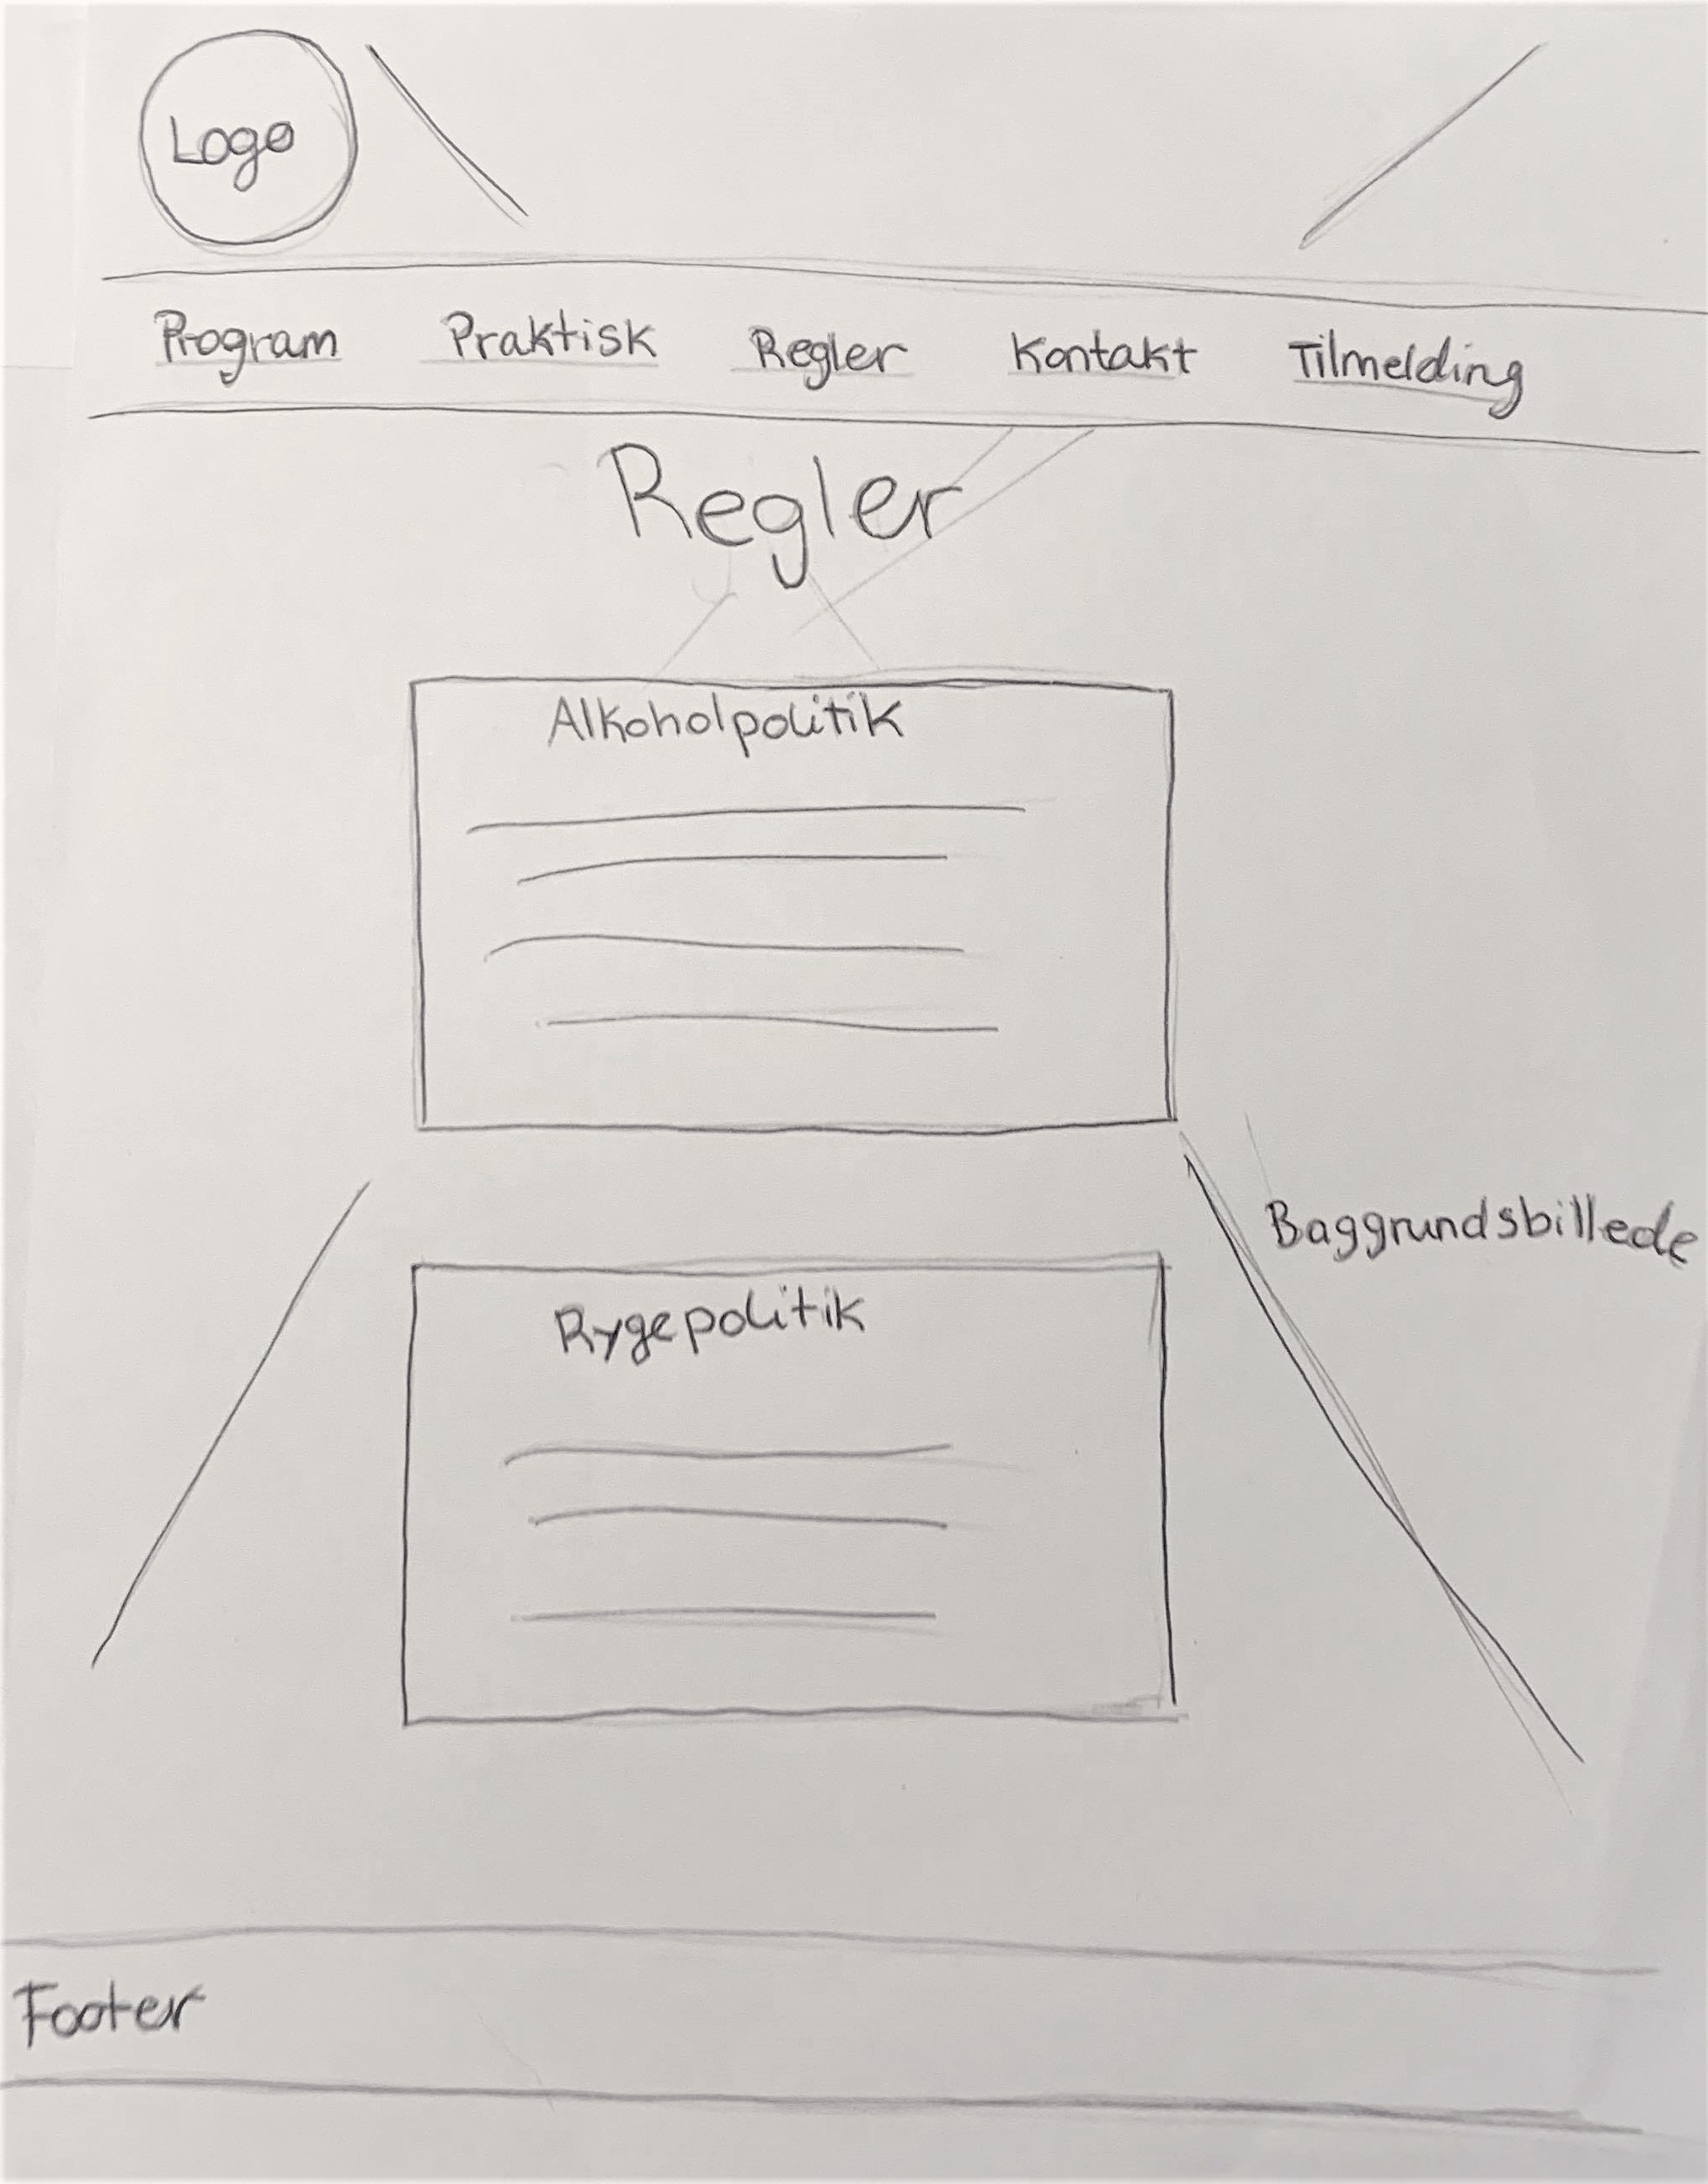 Logo
Program Praktisk Regler Kontakt Tilmelding
Regler
Alkoholpolitik
Baggrundsbillede
Rygepolitik
Footer